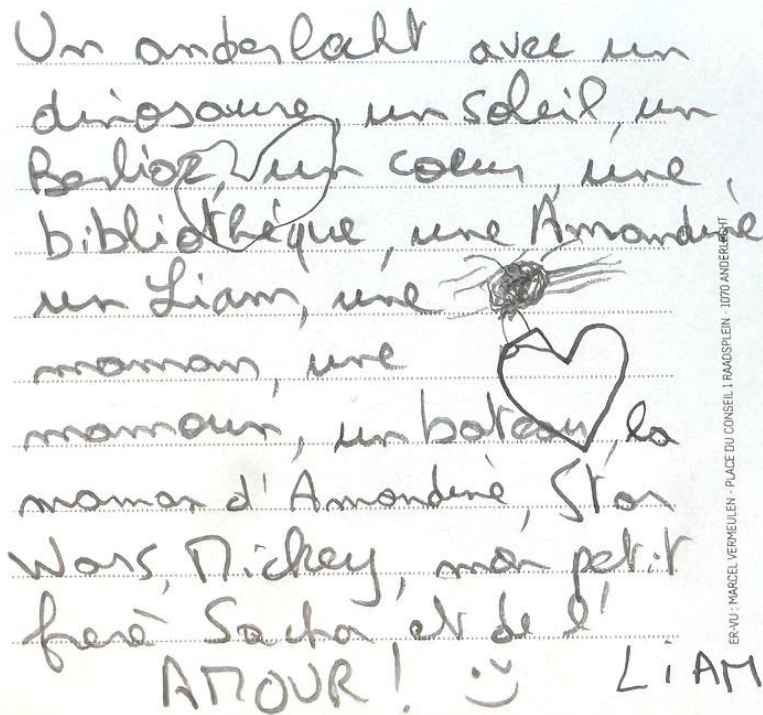 Un anderlecht avec un
dinosaure, un soleil, un
Berlioz, un coeur, une
bibliothèque, une Amandine
un Liam, une
maman, une
mamoun, un bateau, la
maman d'Amandine, Star
Wars, Mickey, mon petit
frère Sacha et de l'
AMOUR! :)
LIAM
ER-VU : MARCEL VERMEULEN - PLACE DU CONSEIL 1 RAADSPLEIN - 1070 ANDERLECHT